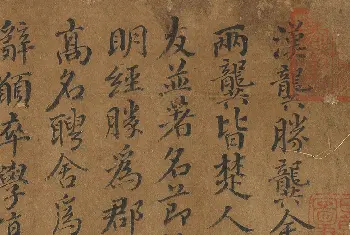 漢龔勝龔舍
兩龔皆楚人
友並著名節
明經勝為郡
高名聘舍為
辭願卒學